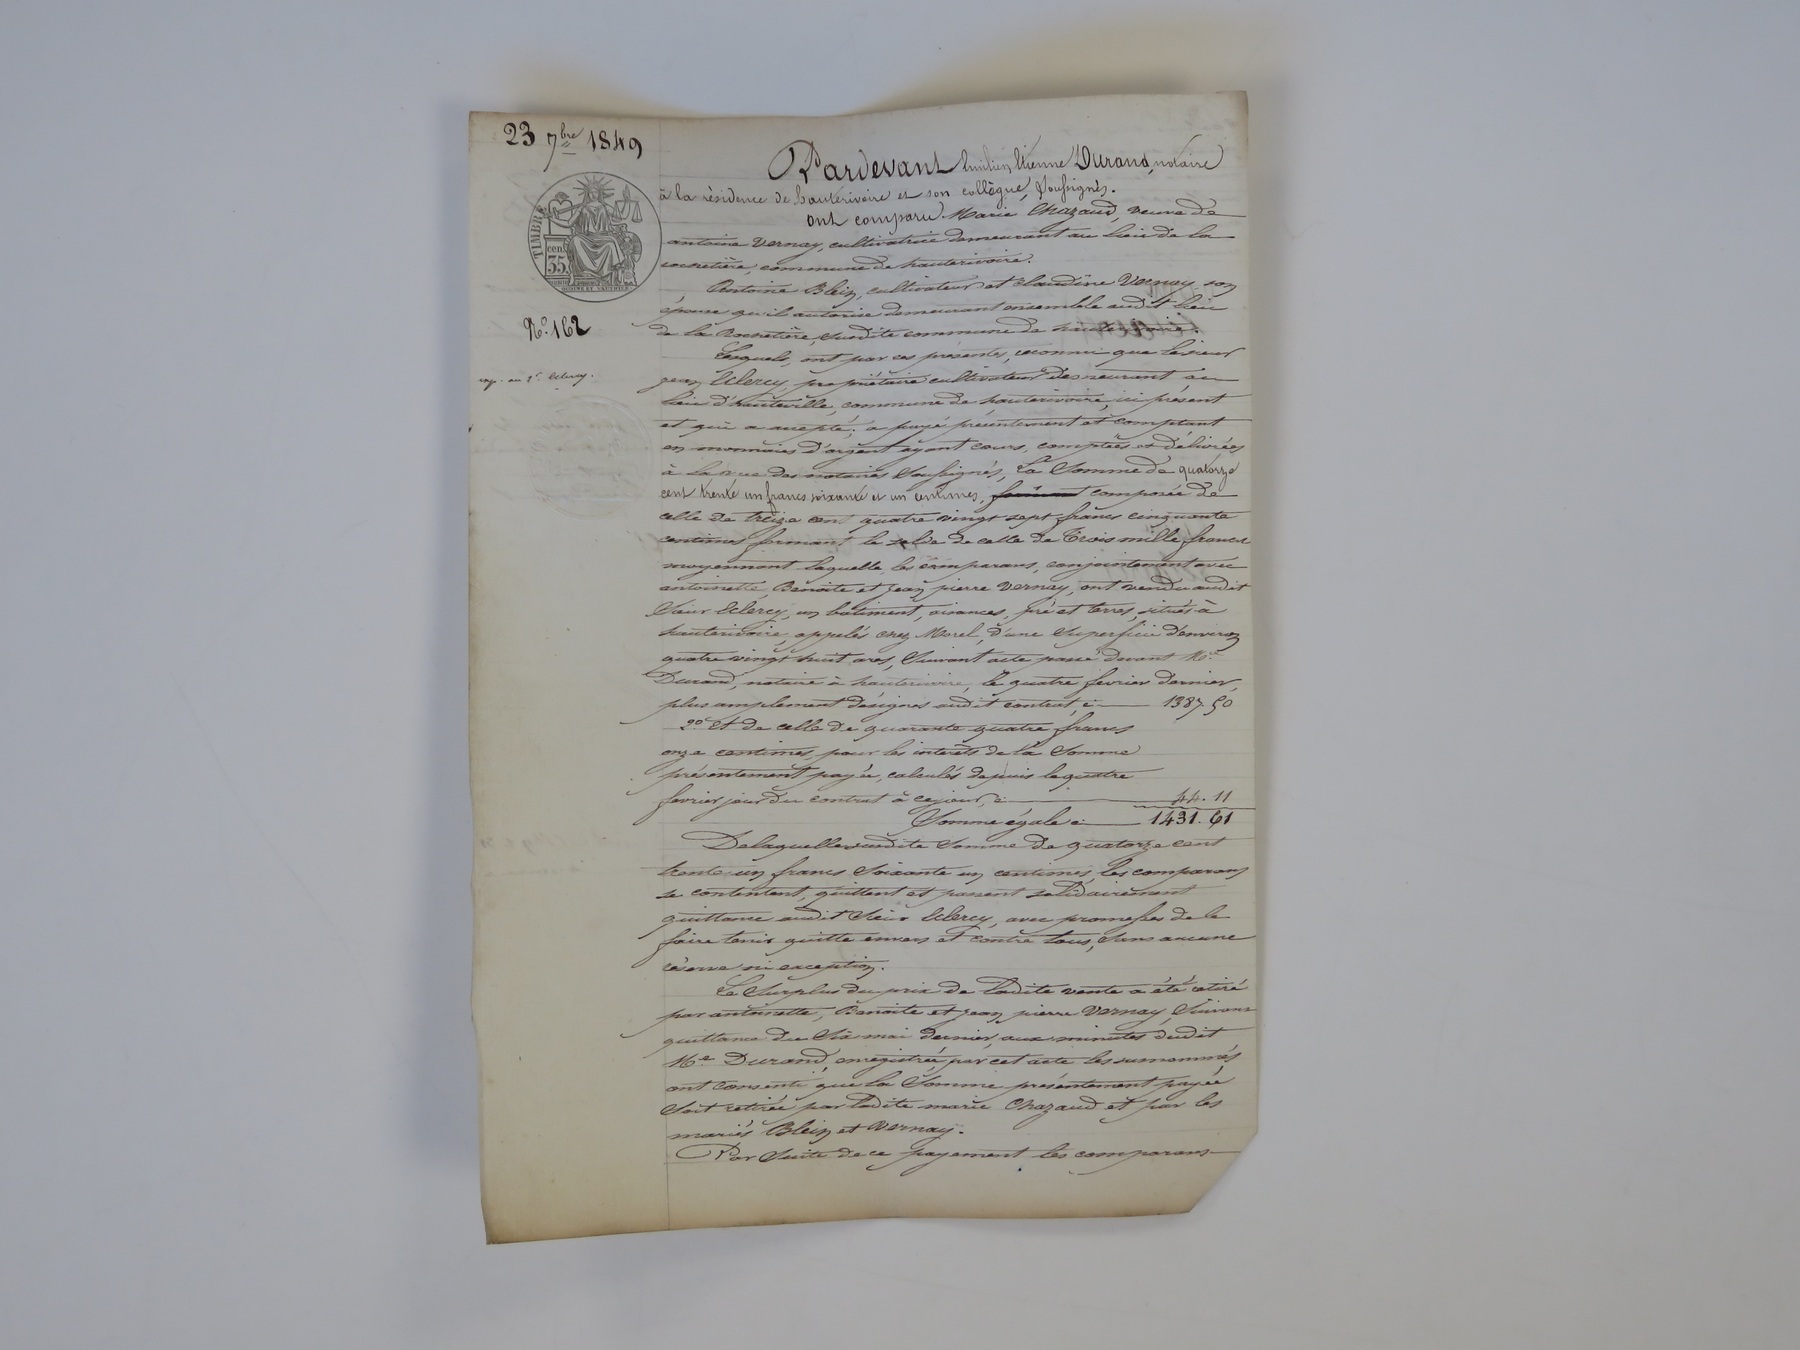 23 7bre 1849
TIMBRE
cent
35
No 162
exp. au Sr Eclercy.
Pardevant Emilien Etienne Durand, notaire
à la résidence de hauterivoire et son collègue, soussignés.
ont comparu Marie Chazaud, veuve de
antoine Vernay, cultivatrice demeurant au lieu de la
rochetière, commune de hauterivoire.
Antoine Blein, cultivateur et claudine Vernay son
épouse qu'il autorise demeurant ensemble audit lieu
de la Rochetière, susdite commune de hauterivoire.
Lesquels, ont par ces présentes, reconnu que le sieur
jean Eclercy, propriétaire cultivateur demeurant au
lieu d'hauteville, commune de hauterivoire, ici présent
et qui a accepté; a payé présentement et comptant
en monnaies d'argent ayant cours, comptées et délivrées
à la vue des notaires soussignés, La Somme de quatorze
cent trente un francs soixante et un centimes, composée de
celle de treize cent quatre vingt sept francs cinquante
centimes formant le solde de celle de Trois mille francs
moyennant laquelle les comparans, conjointement avec
antoinette, Benoite et jean pierre Vernay, ont vendu audit
Sieur Eclercy, un batiment, aisances, pré et terres, situés à
hauterivoire, appelés chez Morel, d'une superficie d'environ
quatre vingt huit ares, Suivant acte passé devant Me
Durand, notaire à hauterivoire, le quatre fevrier dernier,
plus amplement désignés audit contrat, ci 1387 50
2o Et de celle de quarante quatre francs
onze centimes, pour les intérêts de la Somme
présentement payée, calculés depuis le quatre
fevrier jour du contrat à ce jour, ci 44. 11
Somme égale ci 1431. 61
De laquelle susdite Somme de quatorze cent
trente un francs Soixante un centimes, les comparans
se contentent, quittent et passent solidairement
quittance audit Sieur Eclercy, avec promesses de le
faire tenir quitte envers et contre tous, Sans aucune
réserve ni exception.
Le Surplus du prix de Ladite vente a été retiré
par antoinette, Benoite et jean pierre Vernay, Suivant
quittance du Six mai dernier, aux minutes dudit
Me Durand, enregistrée, par cet acte les surnommés
ont consenti que la Somme présentement payée
Soit retirée par Ladite marie Chazaud et par les
mariés Blein et Vernay.
Par Suite de ce payement les comparans